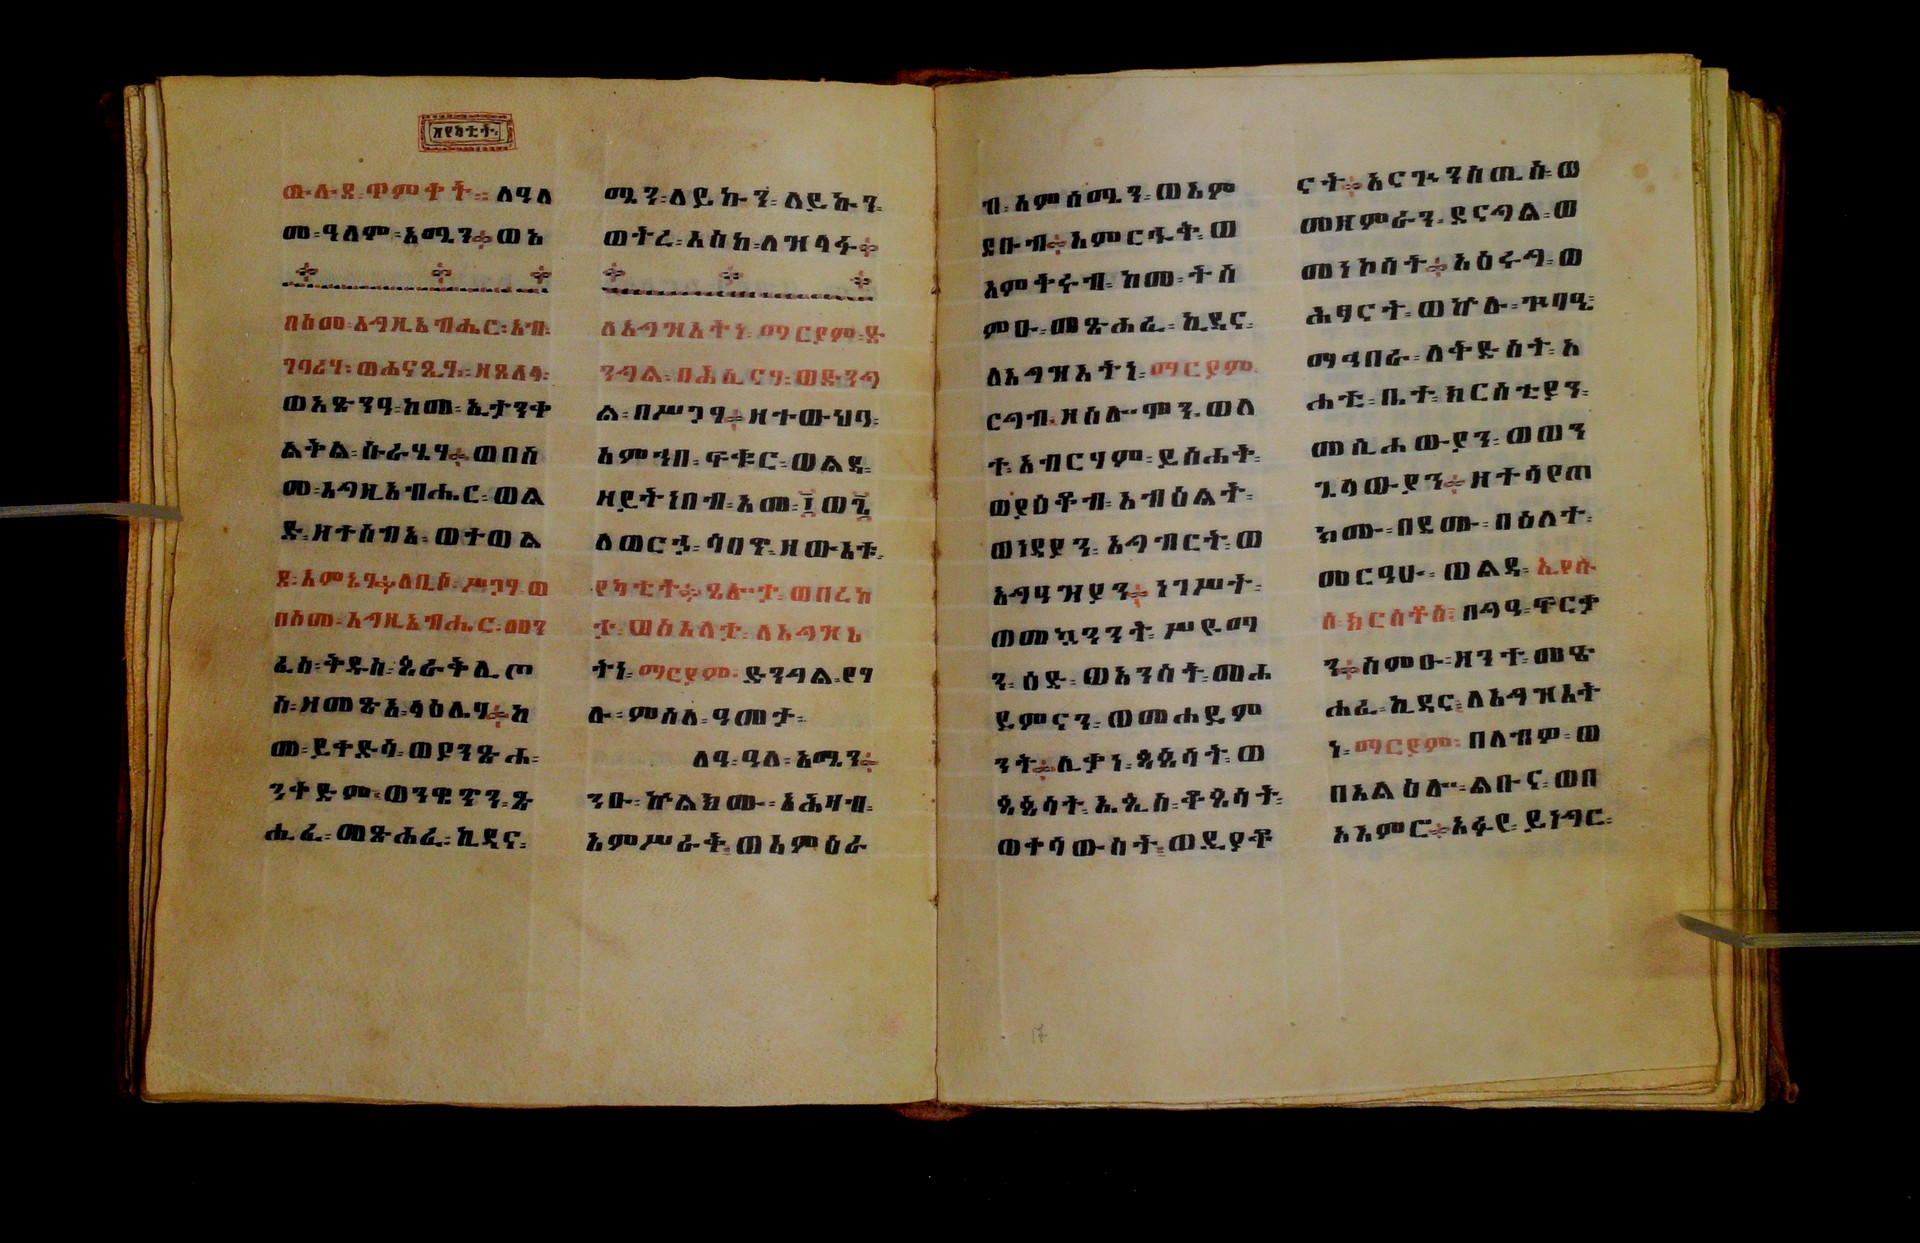 ዘየካቲት፡
ውሉደ፡ ጥምቀት፡፡ ለዓለ
መ፡ ዓለም፡ አሜን፨ ወአ
በስመ፡ እግዚአብሔር፡ አብ፡
ገባሪሃ፡ ወሐናጺሃ፡
ወአጽንዓ፡ ከመ፡ ኢታንቀ
ልቅል፡ ኵራሂሃ፨ ወበስ
መ፡ እግዚአብሔር፡ ወል
ድ፡ ዘተሰብአ፡ ወተወል
ደ፡ እምኔሃ፨ ለቢሶ፡ ሥጋሃ፡ ወ
በስመ፡ እግዚአብሔር፡ መን
ፈስ፡ ቅዱስ፡ ጰራቅሊጦ
ስ፡ ዘመጽአ፡ ላዕሌሃ፨ ከ
መ፡ ይቀድሳ፡ ወያንጽሐ፡
ንቀድም፡ ወንዌጥን፡ ጽ
ሒፈ፡ መጽሐፈ፡ ኪዳና፡
ሜን፡ ለይኩን፡ ለይኩን፡
ወትረ፡ እስከ፡ ለዝላፉ፨
ለእግዝእትነ፡ ማርያም፡ ድ
ንግል፡ በሕሊናሃ፡ ወድንግ
ል፡ በሥጋሃ፨ ዘተውህባ፡
እምኀበ፡ ፍቁር፡ ወልዳ፡
ዘይትነበብ፡ አመ፡ ፲ወ፮
ለወርኃ፡ ሳበጥ፡ ዘውእቱ፡
የካቲት፨ ጸሎታ፡ ወበረከ
ታ፡ ወስእለታ፡ ለእግዝእ
ትነ፡ ማርያም፡ ድንግል፡ የሃ
ሉ፡ ምስለ፡ ዓመታ፡
ለዓ፡ ዓለ፡ አሜን፨
ንዑ፡ ኵልክሙ፡ አሕዛብ፡
እምሥራቅ፡ ወእምዕራ
ብ፡ እምሰሜን፡ ወእም
ደቡብ፨ እምርኁቅ፡ ወ
እምቅሩብ፡ ከመ፡ ትስ
ምዑ፡ መጽሐፈ፡ ኪዳና፡
ለእግዝእትነ፡ ማርያም፡
ርግብ፡ ዘሰሎሞን፡ ወለ
ተ፡ አብርሃም፡ ይስሐቅ፡
ወያዕቆብ፡ አብዕልት፡
ወነዳያን፡ አግብርት፡ ወ
አግዓዝያን፨ ነገሥት፡
ወመኳንንት፡ ሥዩማ
ን፡ ዕድ፡ ወአንስት፡ መሐ
ይምናን፡ ወመሐይም
ንት፨ ሊቃነ፡ ጳጳሳት፡ ወ
ጳጳሳት፡ ኤጲስ፡ ቆጶሳት፡
ወቀሳውስት፡ ወዲያቆ
ናት፨ አናጕንስጢስ፡ ወ
መዘምራን፡ ደናግል፡ ወ
መነኮሳት፨ አዕሩግ፡ ወ
ሕፃናት፡ ወኵሉ፡ ጕባዔ፡
ማኅበራ፡ ለቅድስት፡ አ
ሐቲ፡ ቤተ፡ ክርስቲያን፡
መሲሐውያን፡ ወወን
ጌላውያን፨ ዘተሣየጠ
ክሙ፡ በደሙ፡ በዕለተ፡
መርዓሁ፡ ወልዳ፡ ኢየሱ
ስ፡ ክርስቶስ፡ በግዓ፡ ጥርቃ
ን፨ ስምዑ፡ ዘንተ፡ መጽ
ሐፈ፡ ኪዳና፡ ለእግዝእት
ነ፡ ማርያም፡ በለብዎ፡ ወ
በአልዕሎ፡ ልቡና፡ ወበ
አእምሮ፨ አፉየ፡ ይነግር፡
17